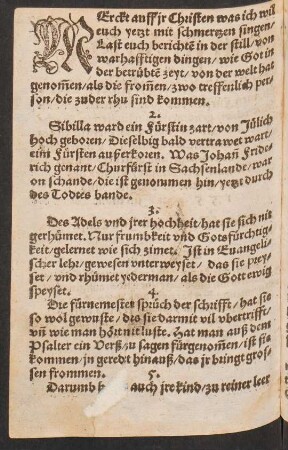 MErckt auff jr Christen was ich wil
euch yetzt mit schmertzen singen/
Last euch berichtē in der still/von
warhafftigen dingen/wie Got in
der betrübtē zeyt/von der welt hat
genom̃en/als die from̃en/zwo treffenlich per-
son/die zuder rhu sind kommen.
2.
Sibilla ward ein Fürstin zart/von Jülich
hoch geboren/Dieselbig bald vertrawet wart/
eim Fürsten auszerkoren. Was Johañ Fride-
rich genant/Churfürst in Sachsenlande/war
on schande/die ist genommen hin/yetzt durch
des Todtes bande.
3.
Des Adels vnd jrer hochheit/hat sie sich nit
gerhümet. Nur frumbkeit vnd Gotsfürchtig-
keit/gelernet wie sich zimet. Jst in Euangeli-
scher lehr/gewesen vnterweyset/das sie prey-
set/vnd rhümet yederman/als die Gott ewig
speyset.
4.
Die fürnemesten sprüch der schrifft/hat sie
so wol gewuste/des sie darmit vil vbertrifft/
vñ wie man hört mit luste. Hat man auß dem
Psalter ein Verß/zu sagen fürgenom̃en/ist sie
kommen/jn geredt hinauß/das jr bringt gros-
sen frommen.
5.
Darumb auch jre kind/zu reiner leer